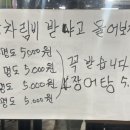 차림비 받고 들어보
명도 5000원
명도 5.000원
명도 5.000원
명도 5.000원
꼭 받습니다
장어탕 5.